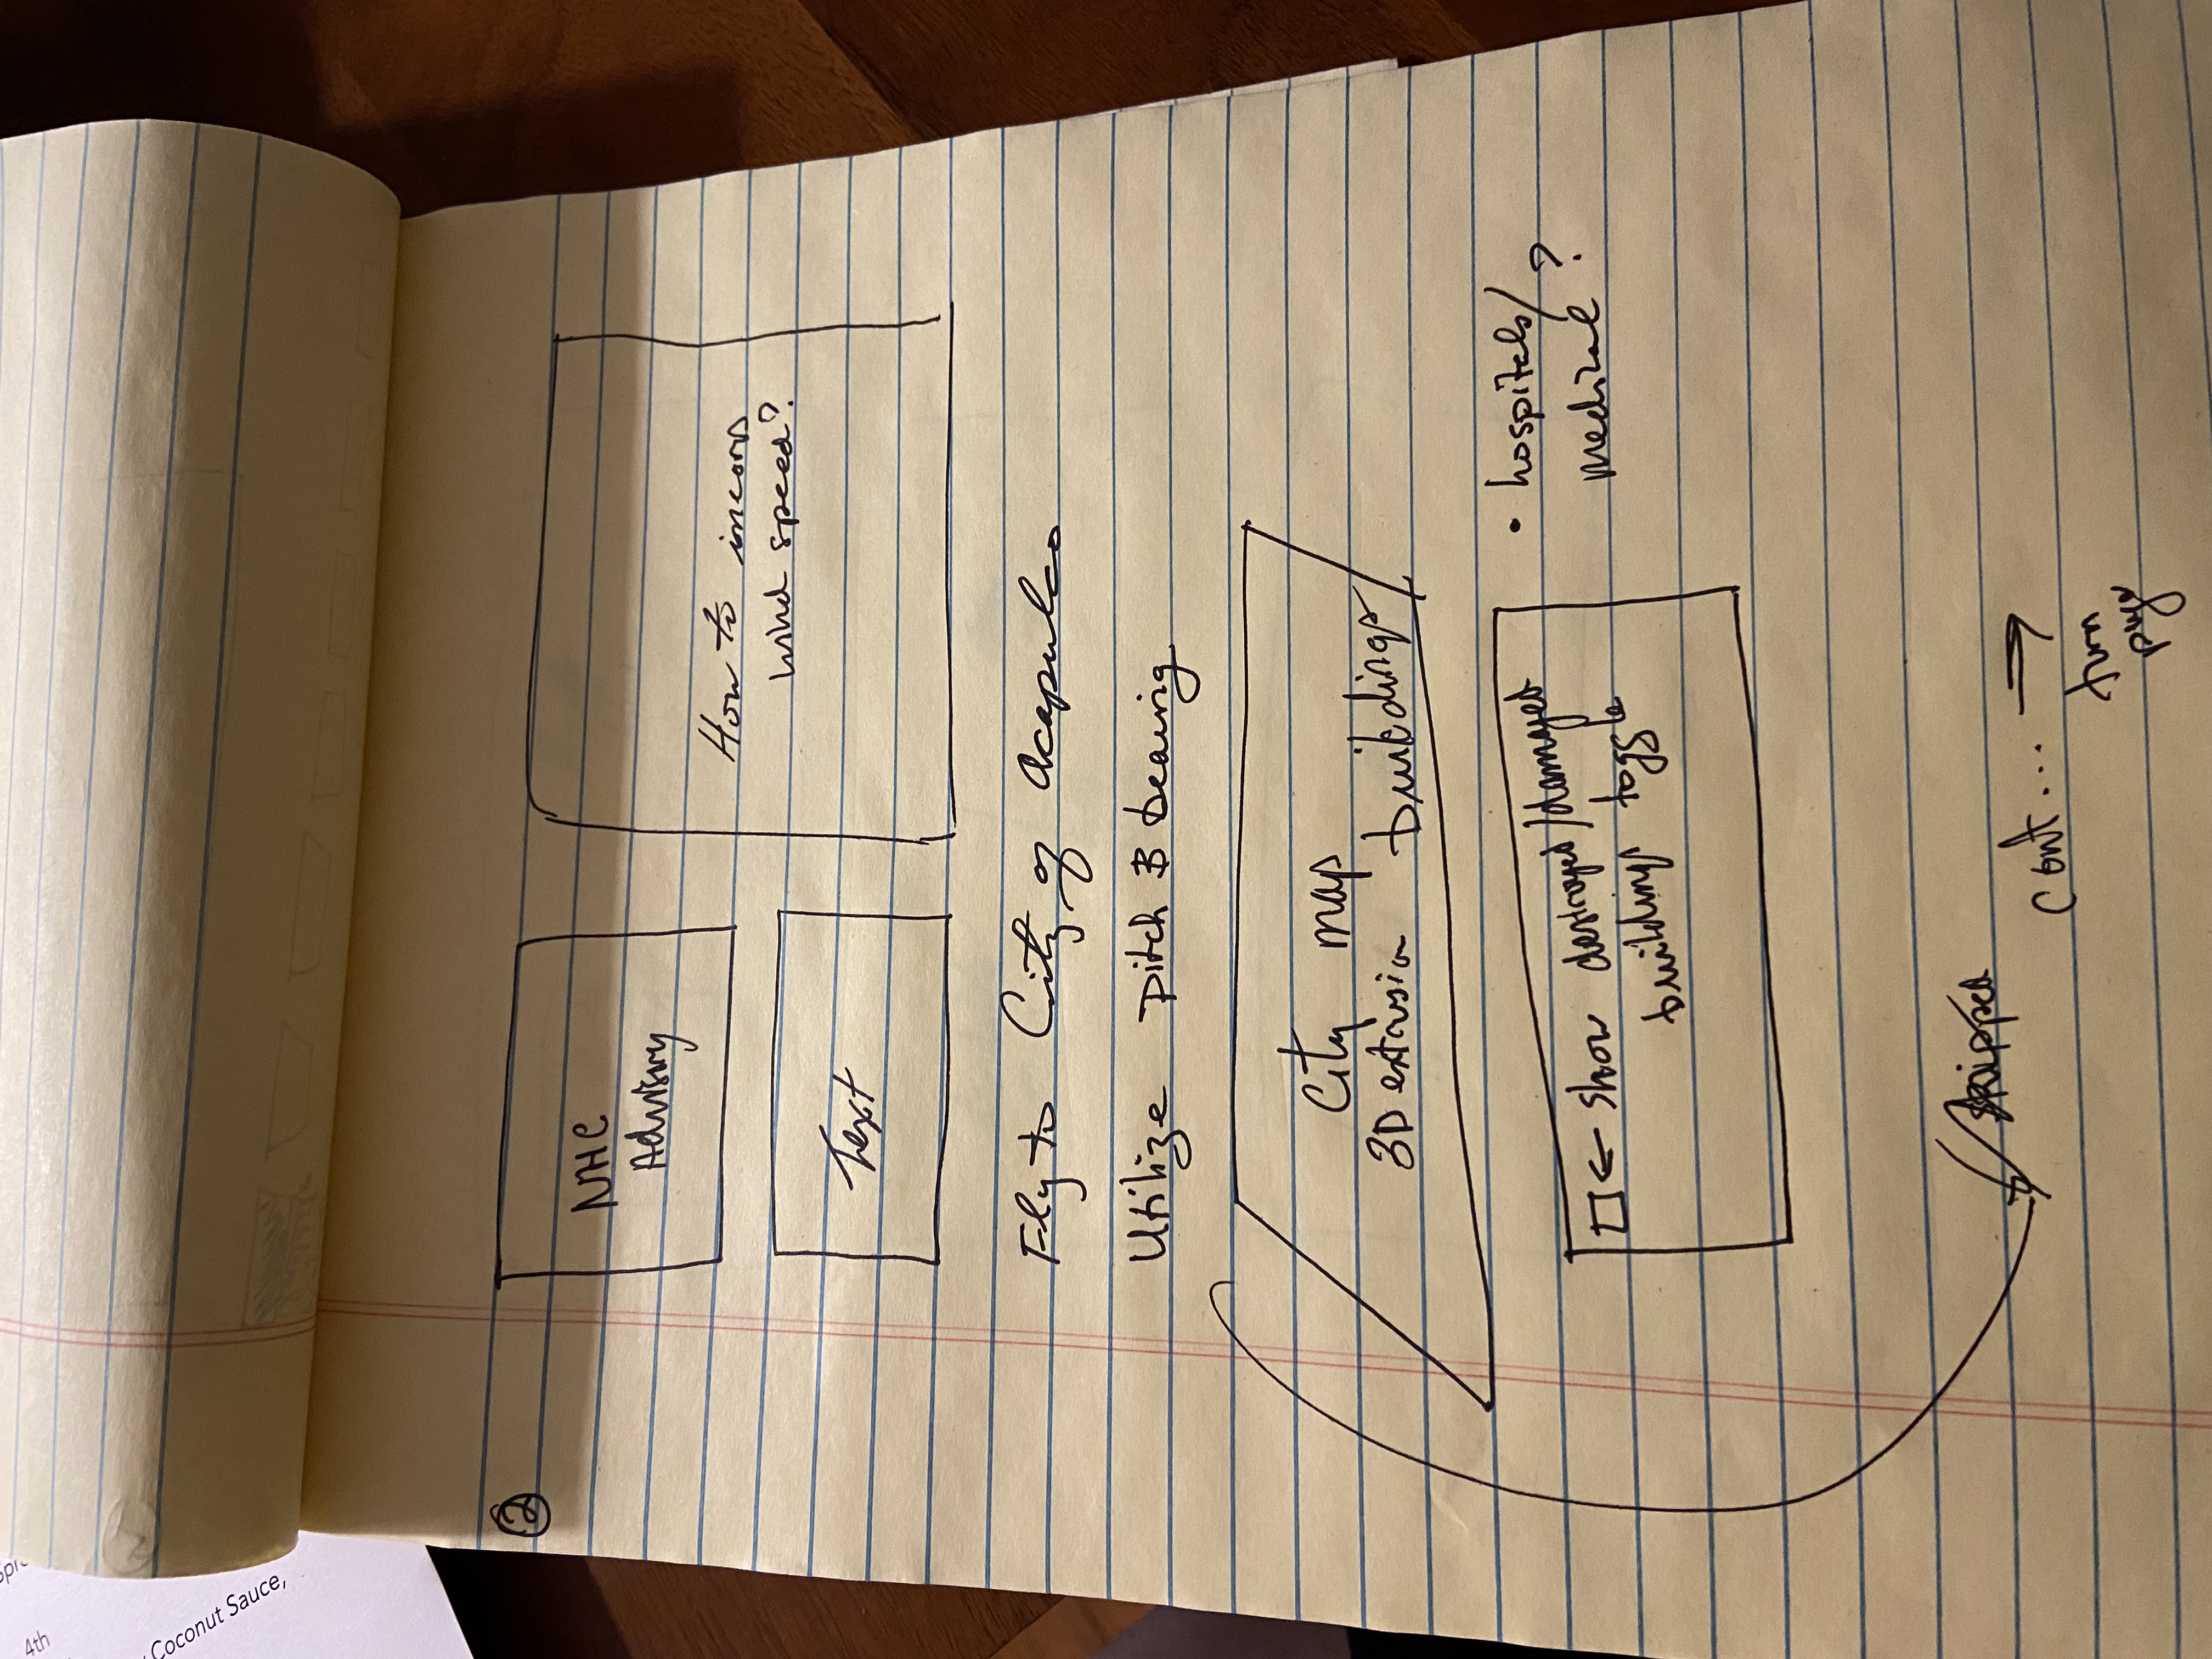 4th
Coconut Sauce,
②
NHC
Advisory
How to incorp
wind speed?
Text
Fly to City of Acapulco
Utilize Pitch & bearing
City map
3D extrusion buildings
□ ← show destroyed/damaged
buildings toggle
• hospitals/
medical ?
skipped
cont... →
turn
page